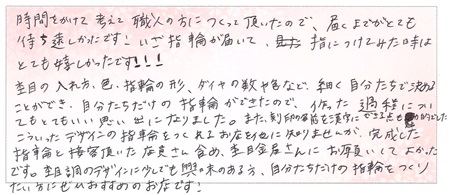 時間をかけて考えて職人の方につくって頂いたので、届くまでがとても
待ち遠しかったです！いざ指輪が届いて、指につけてみた時は
とても嬉しかったです!!!
杢目の入れ方、色、指輪の形、ダイヤの数や色など、細く自分たちで決める
ことができ、自分たちだけの指輪ができたので、作った過程につい
てもとてもいい思い出になりました。また、刻印の名前を漢字にできる点も
こういったデザインの指輪をつくれるお店を他に知りませんが、完成した
指輪と接客頂いた店員さん含め、杢目金屋さんにお願いしてよかった
です。杢目調のデザインに少しでも興味のある方、自分たちだけの指輪をつくり
たい方にぜひおすすめのお店です！